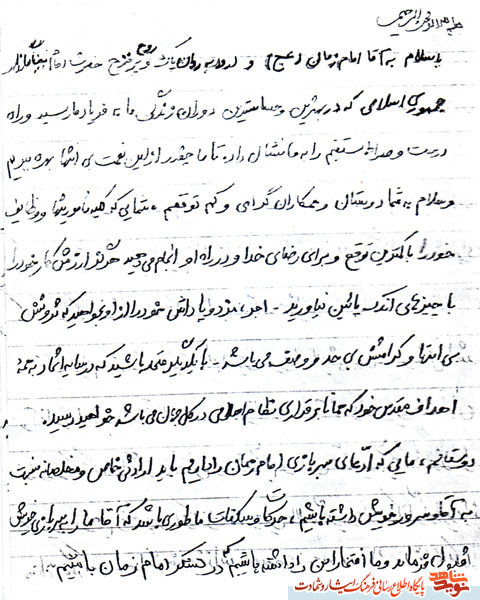 بسم الله الرحمن الرحیم
با سلام به آقا امام زمان (عج) و درود به روان پاک و روح پر فتوح حضرت امام بنیانگذار
جمهوری اسلامی که در بهترین و حساسترین دوران زندگی ما به فریاد ما رسید و راه
درست و صراط مستقیم را به ما نشان داد. تا ما چقدر از این نعمت بی انتها بهره ببریم
و سلام به شما دوستان و همکاران گرامی و کم توقعم، شمایی که کلیه مأموریتها و وظایف
خود را با کمترین توقع و برای رضای خدا و در راه او انجام می دهید هرگز ارزش کار خود را
با چیزهای اندک پائین نیاورید - اجر، مزد و پاداش خود را از او بخواهید که ثروتش
بی انتها و کرامتش بی حد و وصف می باشد - با یکدیگر متحد باشید که در سایه اتحاد به همه
اهداف مقدس خود که همانا برقراری نظام اسلامی در کل جهان می باشد خواهید رسید.
دوستانم، مایی که ادعای سربازی امام زمان را داریم باید ارادتی خاص و مخلصانه نسبت
به آقا و سرور خویش داشته باشیم، حرکات و سکنات ما طوری باشد که آقا ما را به سربازی خویش
قبول فرماید و ما افتخار این را داشته باشیم که در سنگر امام زمان باشیم
نوید شاهد
پایگاه اطلاع رسانی فرهنگ ایثار و شهادت